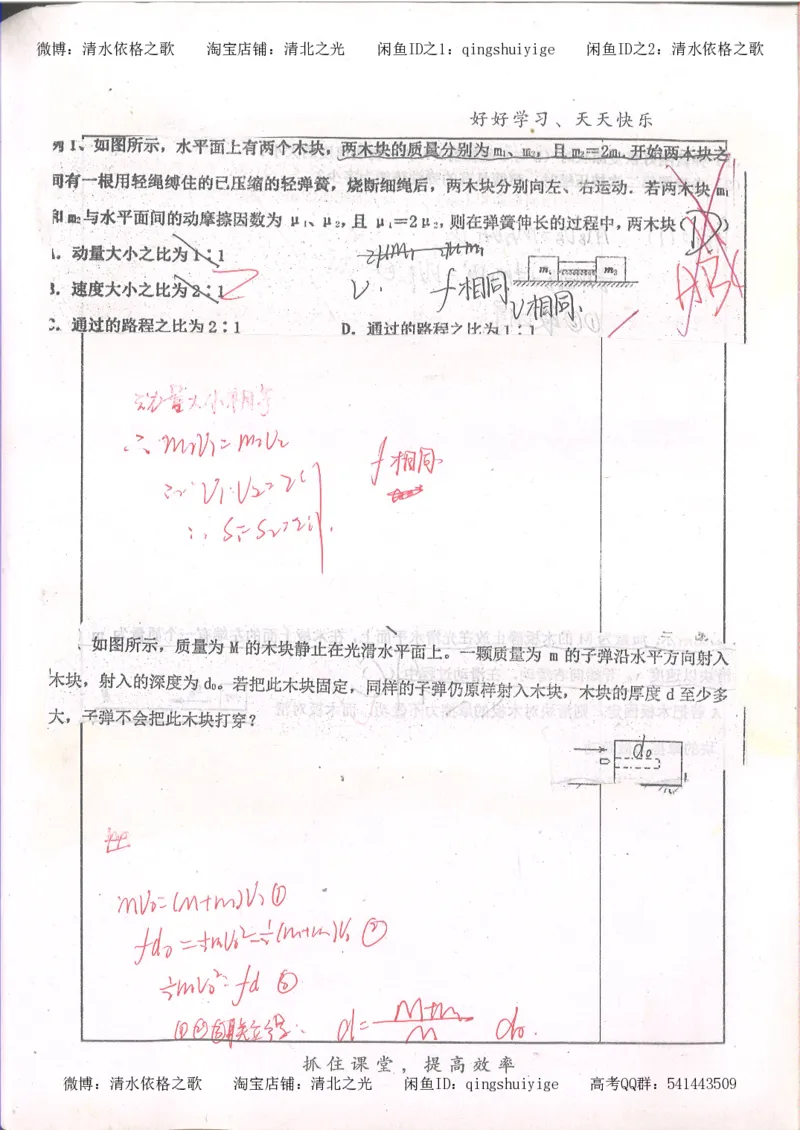 微博：清水依格之歌 淘宝店铺：清北之光 闲鱼ID之1：qingshuiyige 闲鱼ID之2：清水依格之歌
好好学习、天天快乐
列1、如图所示，水平面上有两个木块，两木块的质量分别为m₁、m₂，且m₂＝2m₁.开始两木块之
间有一根用轻绳缚住的已压缩的轻弹簧，烧断细绳后，两木块分别向左、右运动．若两木块m₁
和m₂与水平面间的动摩擦因数为μ₁、μ₂，且μ₁＝2μ₂，则在弹簧伸长的过程中，两木块（D）
A．动量大小之比为1：1
B．速度大小之比为2：1
C．通过的路程之比为2：1
D．通过的路程之比为1：1
m₁ m₂
V. f相同
V相同.
ABC
动量大小相等
∴ m₁V₁＝m₂V₂
∴ V₁:V₂＝2:1
∴ S₁:S₂＝2:1.
f相同.
如图所示，质量为M的木块静止在光滑水平面上。一颗质量为m的子弹沿水平方向射入
木块，射入的深度为d₀。若把此木块固定，同样的子弹仍原样射入木块，木块的厚度d至少多
大，子弹不会把此木块打穿？
d₀
mV₀＝(M+m)V₁ ①
fd₀＝½mV₀²－½(M+m)V₁ ②
½mV₀²＝fd ③
①②③联立得： d＝(M+m)/M d₀.
抓住课堂，提高效率
微博：清水依格之歌 淘宝店铺：清北之光 闲鱼ID：qingshuiyige 高考QQ群：541443509